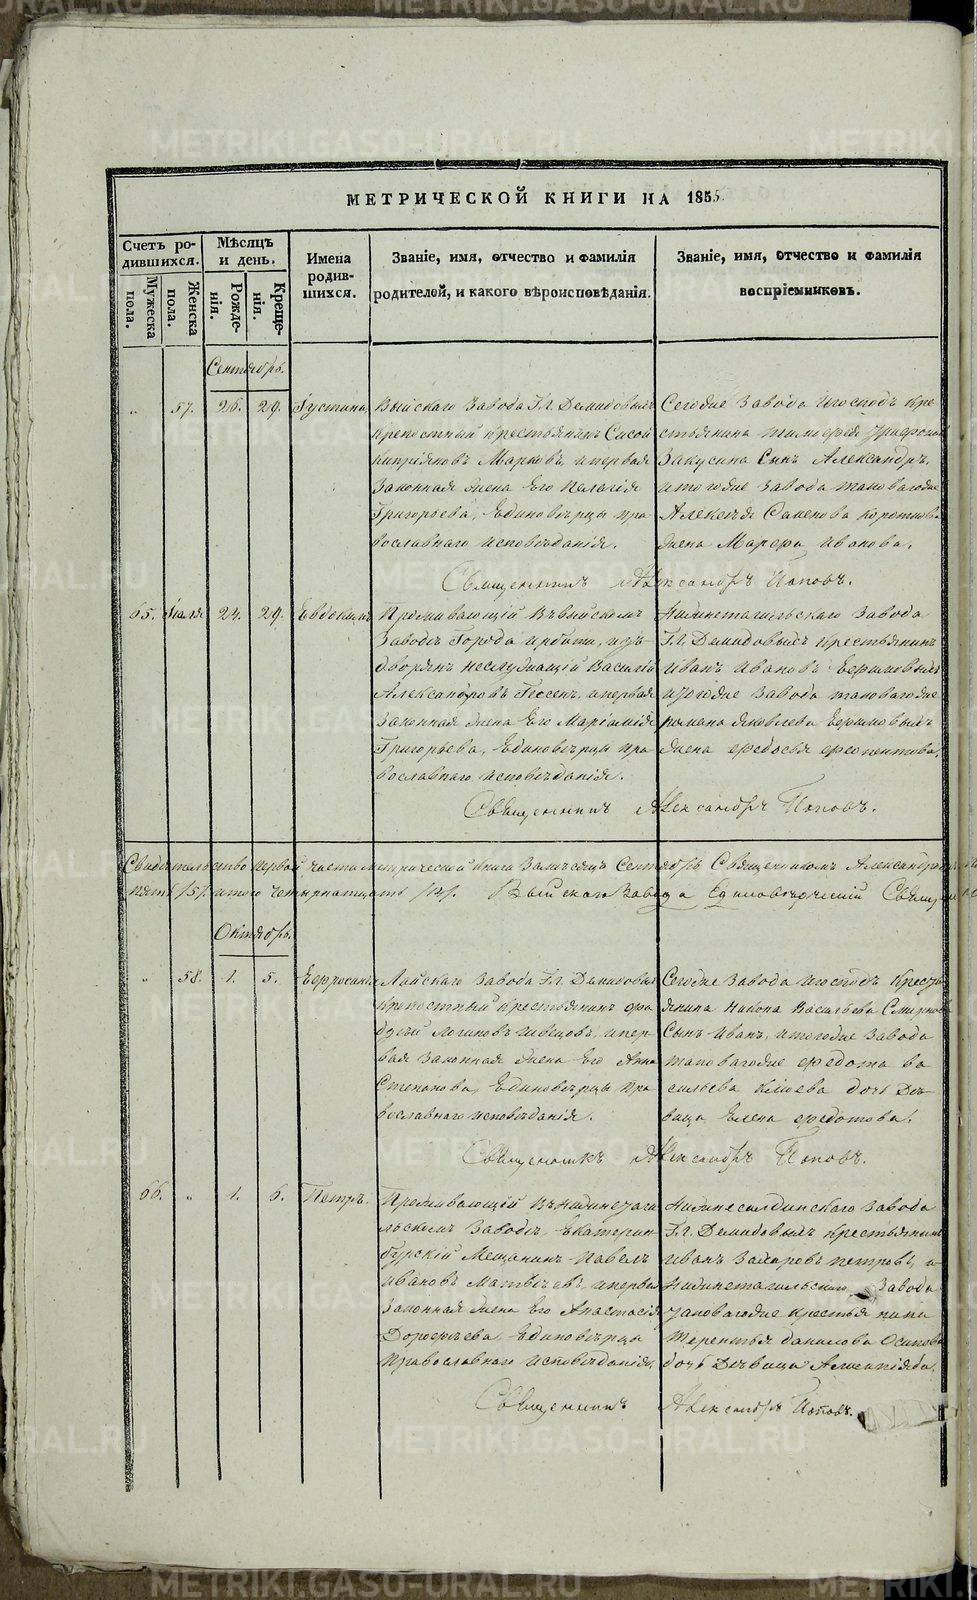 МЕТРИЧЕСКОЙ КНИГИ НА 1855.
Счетъ ро-
дившихся.
Мужеска
пола.
Женска
пола.
Мѣсяцъ
и день.
Рожде-
нія.
Креще-
нія.
Имена
родив-
шихся.
Званіе, имя, отчество и фамилія
родителей, и какого вѣроисповѣданія.
Званіе, имя, отчество и фамилія
воспріемниковъ.
Сентябрь.
„ 57. 26. 29. Іустина,
Выйскаго Завода Г.г. Демидовыхъ
крепостный крестьянинъ Сысой
Кипріяновъ Марковъ, и первая
Законная жена Его Пелагія
Григорьева, Единовѣрцы пра
вославнаго исповѣданія.
Сегоже Завода и господъ кре
стьянина Тимофея
Закусина Сынъ Александръ,
и тогоже завода таковагоже
Алексѣя Семенова
жена Марфа Иванова.
Священникъ Александръ Поповъ.
65. Іюля 24. 29. Евдокимъ
Проживающій въ Выйскомъ
Заводѣ Города Ирбити, изъ
дворянъ неслужащій Василій
Александровъ Гессенъ, и первая
Законная жена Его Маріамія
Григорьева, Единовѣрцы пра
вославнаго исповѣданія.
Нижнетагильскаго Завода
Г.г. Демидовыхъ крестьянинъ
Иванъ Ивановъ
и тогоже Завода таковагоже
Романа Яковлева
жена Федосья Ферапонтова.
Священникъ Александръ Поповъ.
Свидѣтельство первой части метрической книги За мѣсяцъ Сентябрь Священникомъ Александромъ
пять /5/. итого четырнатцать /14/. Выйскаго Завода Единовѣрческій Священникъ
Октябрь.
„ 58. 1. 5. Ефросинія
Лайскаго Завода Г.г. Демидовыхъ
крепостный крестьянинъ Фа
дѣй Логиновъ Швецовъ, и пер
вая Законная жена Его Анна
Степанова, Единовѣрцы пра
вославнаго исповѣданія.
Сегоже Завода и господъ кресть
янина Никона Васильева Смирнова
Сынъ Иванъ, и тогоже Завода
таковагоже Федота Ва
сильева Клюева дочь дѣ
вица Елена Федотова.
Священникъ Александръ Поповъ.
66. „ 1. 6. Петръ.
Проживающій въ Нижнетаги
льскомъ Заводѣ Екатерин
бургскій Мещанинъ Павелъ
Ивановъ Матвѣевъ, и первая
Законная жена Его Анастасія
Дорофѣева, Единовѣрцы
Православнаго Исповѣданія.
Нижнесалдинскаго Завода
Г.г. Демидовыхъ крестьянинъ
Иванъ Захаровъ Петровъ, и
Нижнетагильскаго Завода
таковагоже крестьянина
Терентья Данилова Осипова
дочь Дѣвица
Священникъ Александръ Поповъ.
METRIKI.GASO-URAL.RU